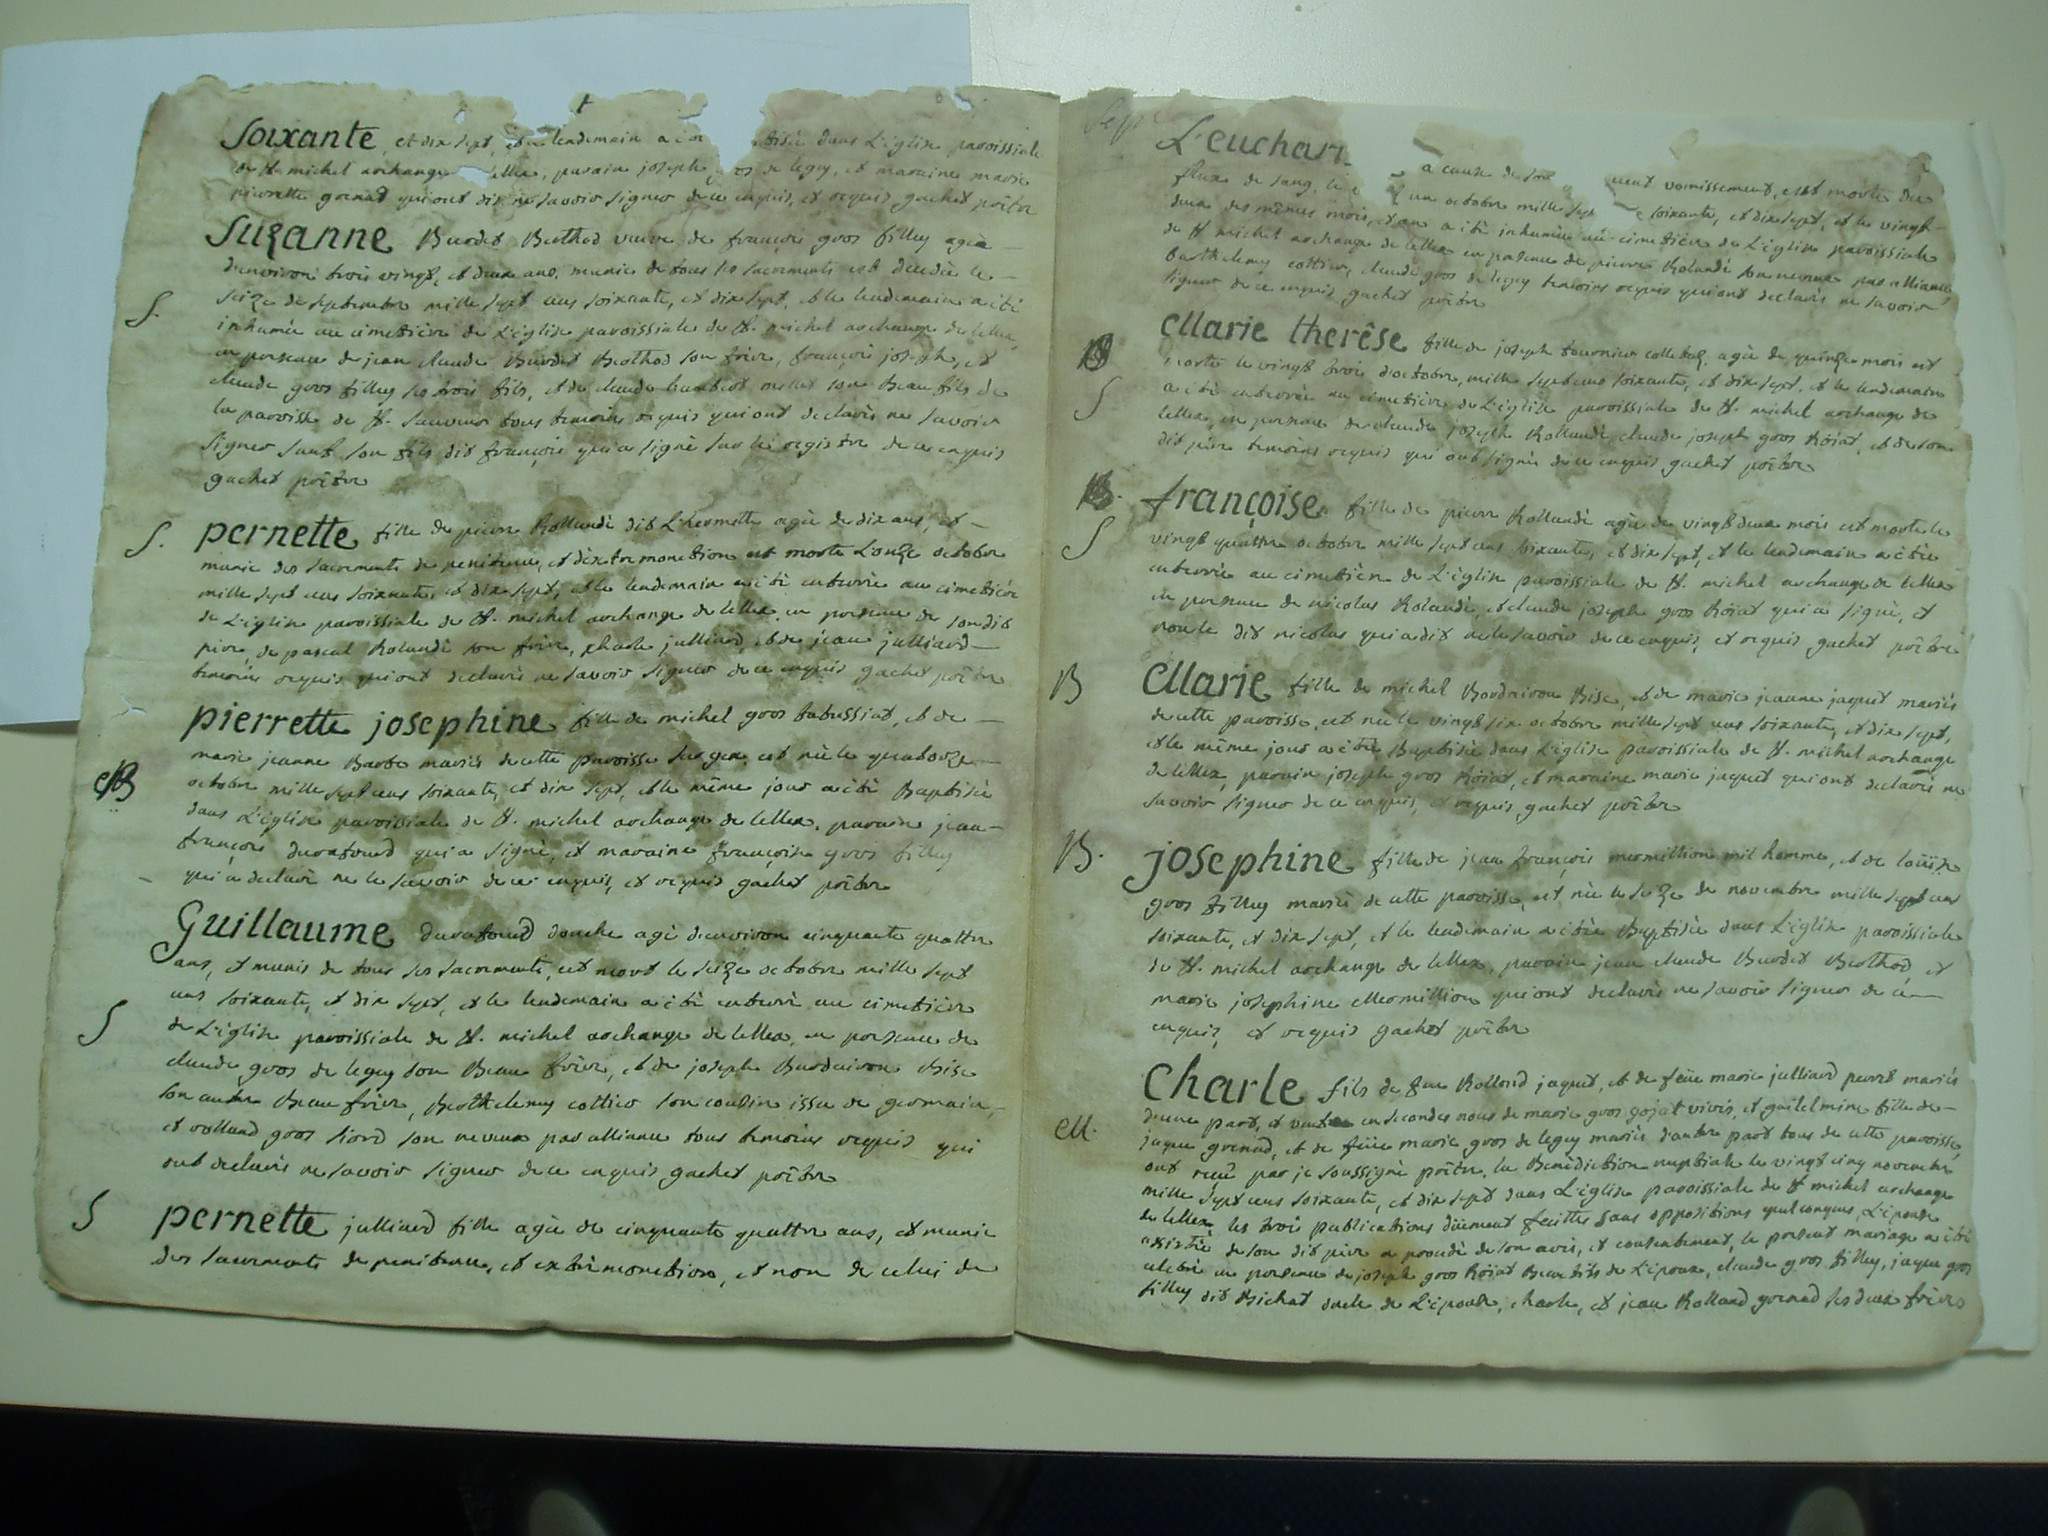 Soixante et dix sept, et le lendemain a été tisée dans L'église paroissiale
de St. michel archange lellex, parain joseph gros de leguy, et maraine marie
pierrette grenad qui ont dit ne savoir signer de ce enquis, et requis gachet prêtre
Suzanne Burdet Berthod veuve de françois gros filley agée
d'environ trois vingt, et deux ans, munie de tous ses sacrements est decedée le
S. seize de septembre mille sept cens soixante, et dix sept, et le lendemain a été
inhumée au cimetière de L'église paroissiale de St. michel archange de lellex,
en presence de jean claude Burdet Berthod son frère, françois joseph, et
claude gros filley ses trois fils, et de claude humbert son Beau fils de
la paroisse de St. Sauveur tous temoins requis qui ont declarés ne savoir
signer sauf son fils dit françois qui a signé sur le registre de ce enquis
gachet prêtre
S. pernette fille de pierre Rollandé dit L'hermette agée de dix ans, et
munie des sacrements de penitence, et d'extremonction est morte L'onze octobre
mille sept cens soixante, et dix sept, et le lendemain a été enterrée au cimetière
de L'église paroissiale de St. michel archange de lellex en presence de son dit
père, de pascal Rolandé son frère, charle julliard, et de jean julliard
temoins requis qui ont declarés ne savoir signer de ce enquis gachet prêtre
pierrette josephine fille de michel gros tabussiat, et de
marie jeanne Barbe mariés de cette paroisse est née le quatorze
B octobre mille sept cens soixante, et dix sept, et le même jour a été Baptisée
dans L'église paroissiale de St. michel archange de lellex, parain jean
françois durafourd qui a signé, et maraine françoise gros filley
qui a declaré ne le savoir de ce enquis, et requis gachet prêtre
Guillaume durafourd douche agé d'environ cinquante quattre
ans, et munis de tous ses sacrements, est mort le seize octobre mille sept
cens soixante, et dix sept, et le lendemain a été enterré au cimetière
S de L'église paroissiale de St. michel archange de lellex, en presence de
claude gros de leguy son Beau frère, et de joseph Burdairon Bise
son autre Beau frère, Barthelemy cottier son cousin issu de germain,
et rolland gros son neveux par alliance tous temoins requis qui
ont declarés ne savoir signer de ce enquis gachet prêtre
S pernette julliard fille agée de cinquante quattre ans, et munie
des sacrements de penitence, et extrêmonction, et non de celui de
L'euchari a cause de son uent vomissement, est morte du
flux de sang, le un octobre mille sept soixante, et dix sept, et le vingt
deux des mêmes mois, et an a été inhumée au cimetière de L'église paroissiale
de St michel archange de lellex en presence de pierre Rolandé son neveux par alliance
Barthelemy cottier, claude gros de leguy temoins requis qui ont declarés ne savoir
signer de ce enquis gachet prêtre
Marie therêse fille de joseph fournier collet agée de quinze mois est
morte le vingt trois d'octobre, mille sept cens soixante, et dix sept, et le lendemain
S a été enterrée au cimetière de L'église paroissiale de St. michel archange de
lellex, en presence de claude joseph Rollandé, claude joseph gros Roiat, et de son
dit père temoins requis qui ont signés de ce enquis gachet prêtre
B. françoise fille de pierre Rollandé agée de vingt deux mois est morte le
S vingt quattre octobre mille sept cens soixante, et dix sept, et le lendemain a été
enterrée au cimetière de L'église paroissiale de St. michel archange de lellex
en presence de nicolas Rolandé, et claude joseph gros Roiat qui a signé, et
non le dit nicolas qui a dit ne le savoir de ce enquis, et requis gachet prêtre
B Marie fille de michel Bordairon Bise, et de marie jeanne jaquet mariés
de cette paroisse, est née le vingt six octobre mille sept cens soixante, et dix sept,
et le même jour a été Baptisée dans L'église paroissiale de St. michel archange
de lellex, parain joseph gros Roiat, et maraine marie jaquet qui ont declarés ne
savoir signer de ce enquis, et requis gachet prêtre
B. josephine fille de jean françois mermillion mil homme, et de loüise
gros filley mariés de cette paroisse, est née le seize de novembre mille sept cens
soixante, et dix sept, et le lendemain a été Baptisée dans L'église paroissiale
de St. michel archange de lellex, parain jean claude Burdet Berthod, et
marie josephine Mermillion qui ont declarés ne savoir signer de ce
enquis, et requis gachet prêtre
Charle fils de feu Rolland jaquet, et de feüe marie julliard mariés
d'une part, et en secondes nous de marie gros gojat vivis, et guilelmine fille de
M. jaque grenad, et de feüe marie gros de leguy mariés d'autre part tous de cette paroisse,
ont reçu par je soussigné prêtre la Benediction nuptiale le vingt cinq novembre
mille sept cens soixante, et dix sept dans L'église paroissiale de St michel archange
de lellex, les trois publications düement feuittes sans oppositions quelconques, L'épouse
assistée de son dit père a procedé de son avis, et consentement, le present mariage a été
celebré en presence de joseph gros Roiat Beau fils de L'époux, claude gros filley, jaque gros
filley dit Michat oncle de L'épouse, charle, et jean Rolland grenad ses deux frères